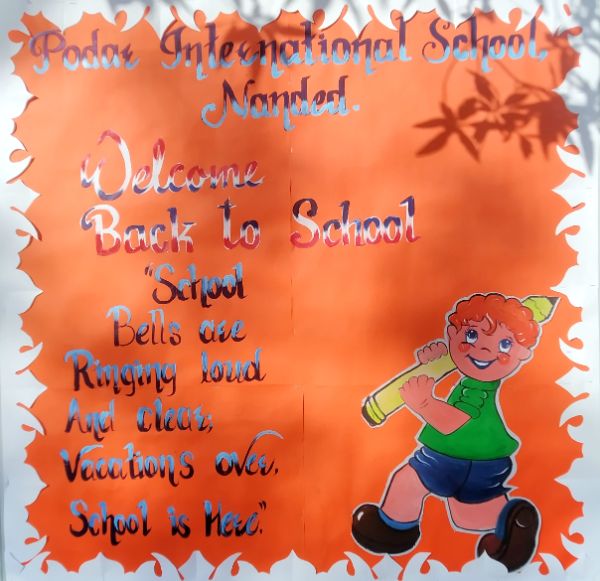 Podar International School,
Nanded.
Welcome
Back to School
"School
Bells are
Ringing loud
And clear;
Vacations over,
School is Here."